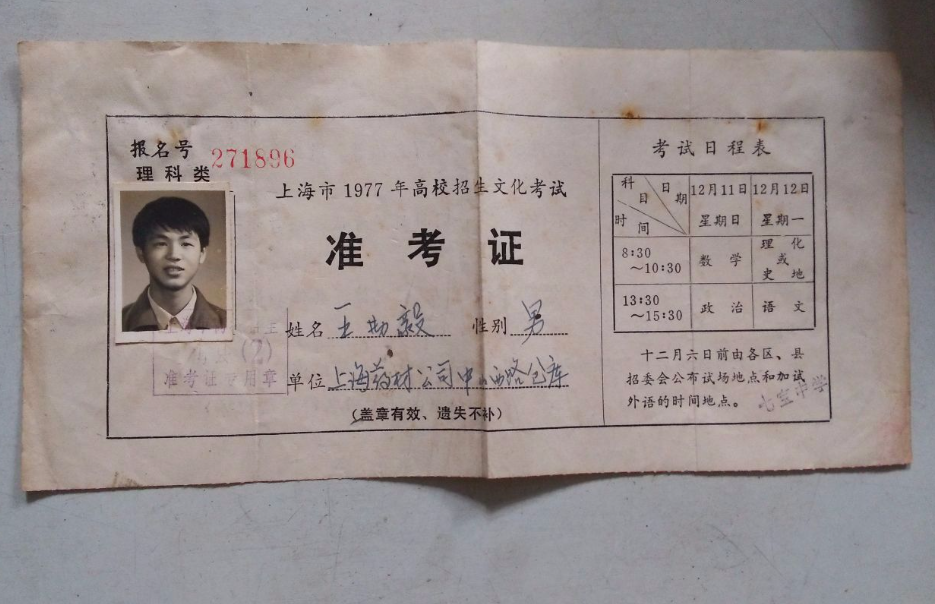 报名号 271896
理科类
上海市1977年高校招生文化考试
准考证
姓名 王勤毅 性别 男
单位 上海药材公司中山西路仓库
(盖章有效、遗失不补)
(2)
准考证专用章
考试日程表
科目 日期 时间 12月11日 星期日 12月12日 星期一
8:30~10:30 数学 理化或史地
13:30~15:30 政治 语文
十二月六日前由各区、县
招委会公布试场地点和加试
外语的时间地点。
七宝中学